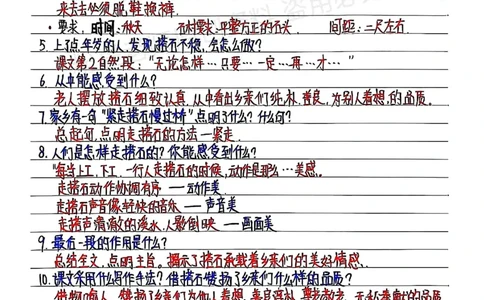 来去必须脱鞋挽裤.
·要求,时间:秋天 石材要求:平整方正的石头. 间距:二尺左右.
5.上了点年岁的人,发现搭石不稳,会怎么做?
课文第2自然段:"无论怎样…只要…一定…再…才…"
6.从中能感受到什么?
老人摆放搭石细致认真,从中看出乡亲们纯朴、善良,为别人着想的品质.
7.家乡有一句"紧走搭石慢过桥"点明了什么?什么句?
总起句,点明走搭石的方法—紧走.
8.人们是怎样走搭石的?你能感受到什么?
"每当上工、下工,一行人走搭石的时候,动作是那么…美感.
走搭石动作协调有序 — 动作美
走搭石声音像轻快的音乐 — 声音美
走搭声 漪漪的淡水,人影倒映 — 画面美
9.最后一段的作用是什么?
总结全文,点明主旨,揭示了搭石承载着乡亲们的美好情感.
10.课文采用什么写作手法?借搭石赞扬了乡亲们什么样的品质?
借物喻人,赞扬了乡亲们为他人着想、